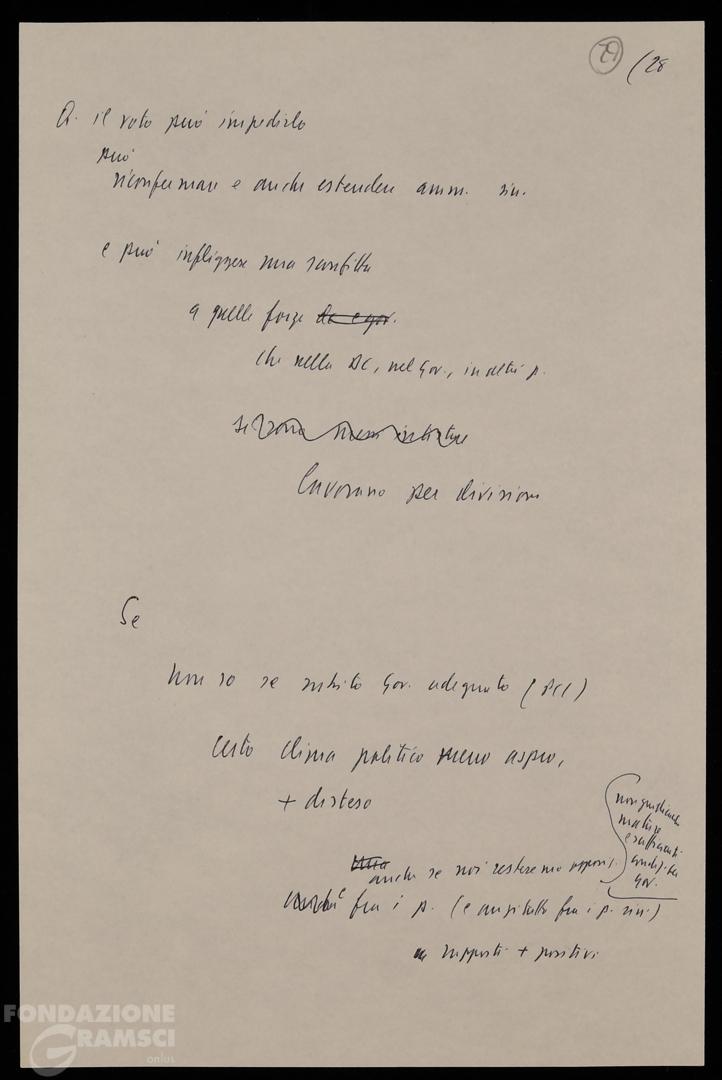 29 (28
Q. il voto può impedirlo
può
riconfermare e anche estendere amm. sin.
e può infliggere una sconfitta
a quelle forze
che nella DC, nel Gov., in altri p.
lavorano per divisioni
Se
Non so se subito Gov. adeguato (PCI)
certo clima politico meno aspro,
+ disteso
anche se noi resteremo opposiz.
non giudicando
mature
e sufficienti
condiz. per
Gov.
e fra i p. (e anzitutto fra i p. sin.)
rapporti + positivi
FONDAZIONE
GRAMSCI
onlus